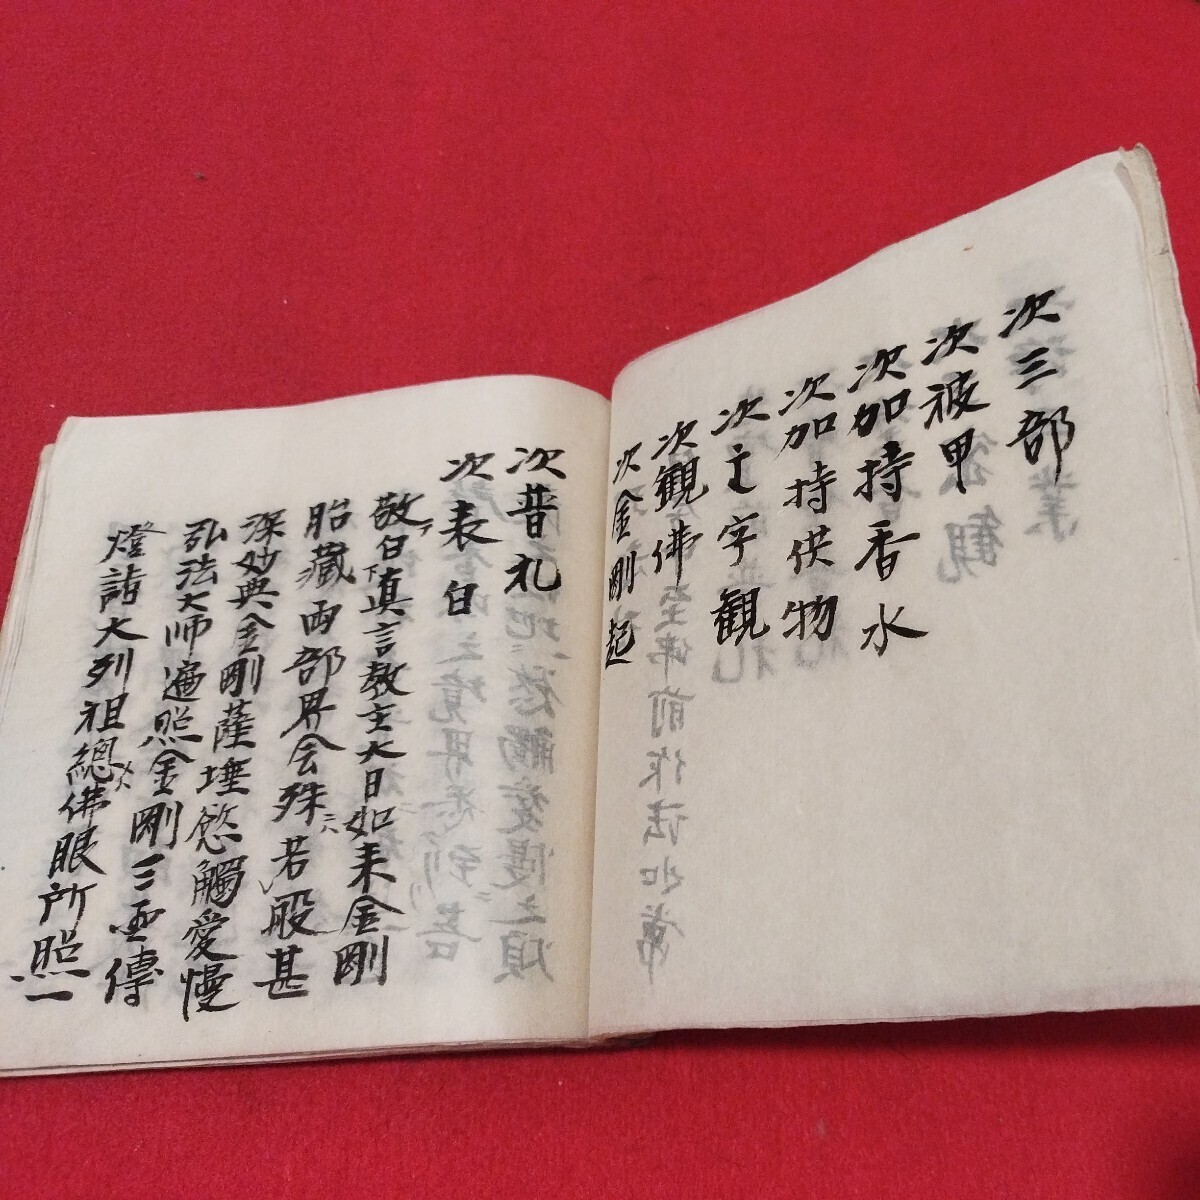 次三部
次被甲
次加持香水
次加持供物
次字観
次観佛
次金剛起
次普礼
次表白
敬白真言教主大日如来金剛
胎藏両部界会殊若般甚
深妙典金剛薩埵慾觸愛慢
弘法大师遍照金剛三国傳
燈諸大列祖總佛眼所照